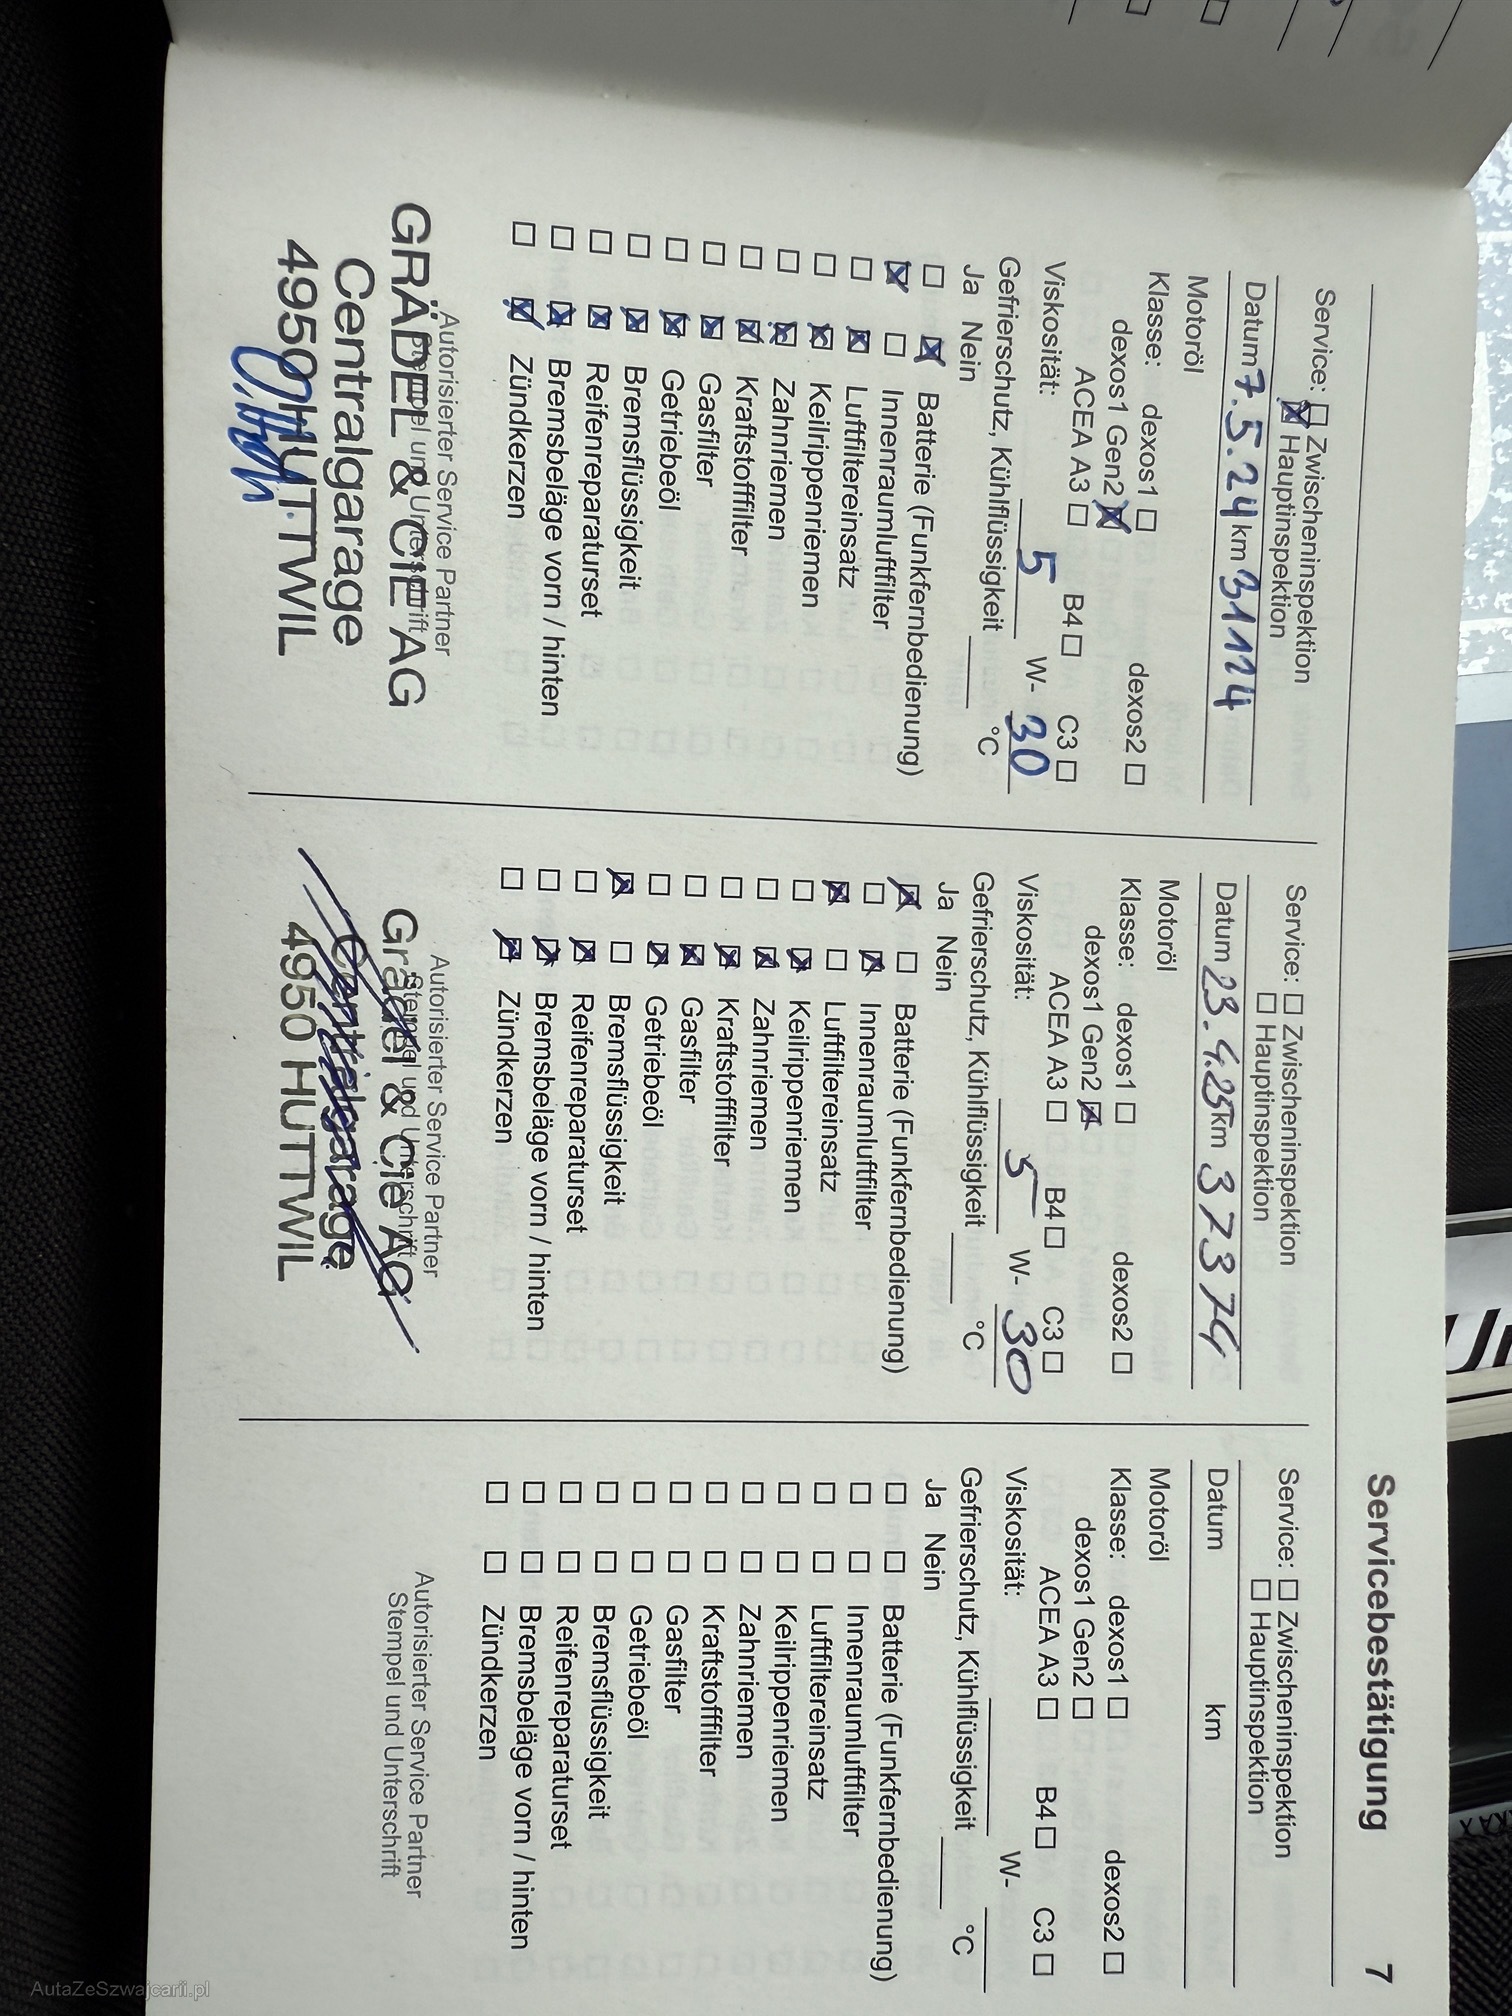 Servicebestätigung
7
Service: ☐ Zwischeninspektion
☒ Hauptinspektion
Datum 7.5.24 km 31124
Motoröl
Klasse: dexos1 ☐ dexos2 ☐
dexos1 Gen2 ☒
ACEA A3 ☐ B4 ☐ C3 ☐
Viskosität: 5 W- 30
Gefrierschutz, Kühlflüssigkeit ____ °C
Ja Nein
☐ ☒ Batterie (Funkfernbedienung)
☒ ☐ Innenraumluftfilter
☐ ☒ Luftfiltereinsatz
☐ ☒ Keilrippenriemen
☐ ☒ Zahnriemen
☐ ☒ Kraftstofffilter
☐ ☒ Gasfilter
☐ ☒ Getriebeöl
☐ ☒ Bremsflüssigkeit
☐ ☒ Reifenreparaturset
☐ ☒ Bremsbeläge vorn / hinten
☐ ☒ Zündkerzen
Autorisierter Service Partner
Stempel und Unterschrift
GRÄDEL & CIE AG
Centralgarage
4950 HUTTWIL
Service: ☐ Zwischeninspektion
☐ Hauptinspektion
Datum 23.4.25 km 37374
Motoröl
Klasse: dexos1 ☐ dexos2 ☐
dexos1 Gen2 ☒
ACEA A3 ☐ B4 ☐ C3 ☐
Viskosität: 5 W- 30
Gefrierschutz, Kühlflüssigkeit ____ °C
Ja Nein
☒ ☐ Batterie (Funkfernbedienung)
☐ ☒ Innenraumluftfilter
☒ ☐ Luftfiltereinsatz
☐ ☒ Keilrippenriemen
☐ ☒ Zahnriemen
☐ ☒ Kraftstofffilter
☐ ☒ Gasfilter
☐ ☒ Getriebeöl
☒ ☐ Bremsflüssigkeit
☐ ☒ Reifenreparaturset
☐ ☒ Bremsbeläge vorn / hinten
☐ ☒ Zündkerzen
Autorisierter Service Partner
Stempel und Unterschrift
Grädel & Cie AG
Centralgarage
4950 HUTTWIL
Service: ☐ Zwischeninspektion
☐ Hauptinspektion
Datum km
Motoröl
Klasse: dexos1 ☐ dexos2 ☐
dexos1 Gen2 ☐
ACEA A3 ☐ B4 ☐ C3 ☐
Viskosität: ____ W- ____
Gefrierschutz, Kühlflüssigkeit ____ °C
Ja Nein
☐ ☐ Batterie (Funkfernbedienung)
☐ ☐ Innenraumluftfilter
☐ ☐ Luftfiltereinsatz
☐ ☐ Keilrippenriemen
☐ ☐ Zahnriemen
☐ ☐ Kraftstofffilter
☐ ☐ Gasfilter
☐ ☐ Getriebeöl
☐ ☐ Bremsflüssigkeit
☐ ☐ Reifenreparaturset
☐ ☐ Bremsbeläge vorn / hinten
☐ ☐ Zündkerzen
Autorisierter Service Partner
Stempel und Unterschrift
AutaZeSzwajcarii.pl